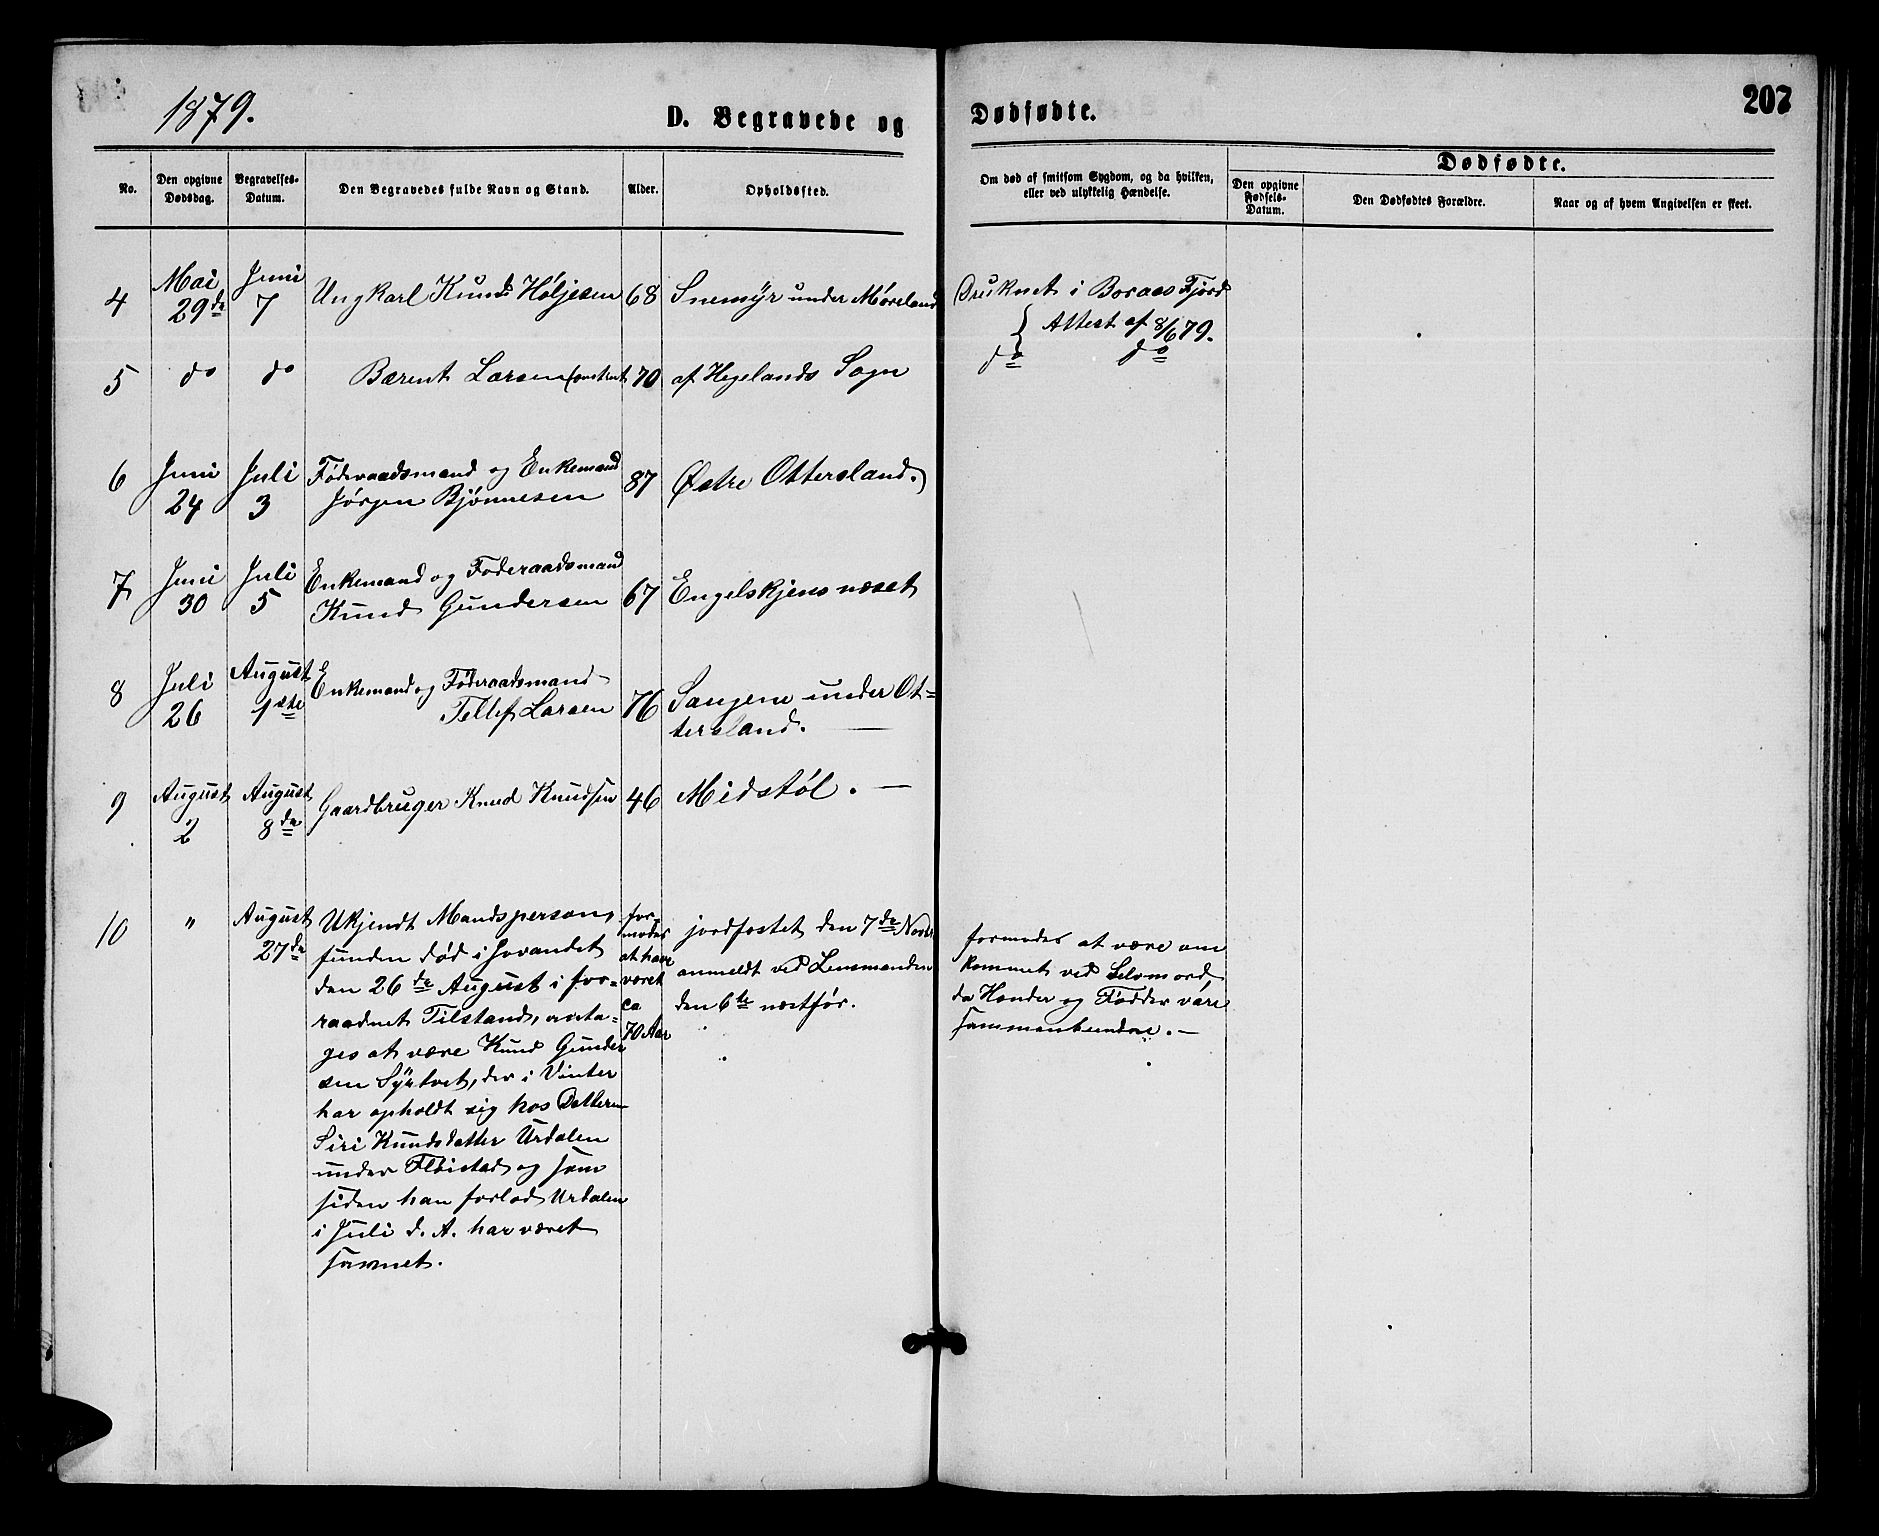 1879.
D. Begravede og
Dødfødte.
207
No.
Den opgivne Dødsdag.
Begravelses-Datum.
Den Begravedes fulde Navn og Stand.
Alder.
Opholdssted.
Om død af smitsom Sygdom, og da hvilken, eller ved ulykkelig Hændelse.
Dødfødte.
Den opgivne Fødsels-Datum.
Den Dødfødtes Forældre.
Naar og af hvem Angivelsen er skeet.
4
Mai 29de
Juni 7
Ungkarl Knud Høljesen
68
Snemÿr under Møreland
Druknet i Boraas Fjord
Attest af 8/6 79.
5
do
do
Bærent Larsen
70
af Hegelands Sogn
do do
6
Juni 24
Juli 3
Føderaadsmand og Enkemand
Jørgen Bjønnesen
87
Østre Ottersland.
7
Juni 30
Juli 5
Enkemand og Føderaadsmand
Knud Gundersen
67
Engelskjens næset
8
Juli 26
August 1ste
Enkemand og Føderaadsmand
Tellef Larsen
76
Saugene under Ot=
tersland.
9
August 2
August 8de
Gaardbruger Knud Knudsen
46
Midstøl.
10
"
August 27de
Ukjendt Mandsperson,
funden død i Sovandet
den 26de August i for=
raadnet Tilstand, anta=
ges at være Knud Gunder
sen Sÿrtvet, der i Vinter
har opholdt sig hos Datteren
Siri Knudsdatter Urdalen
under Fløistad og som
siden han forlod Urdalen
i Juli d. A. har været
savnet.
for=
modes
at have
været
ca
70 Aar
jordfæstet den 7de Novbr
anmeldt ved Lensmanden
den 6te næstfør.
formodes at være om
kommet ved Selvmord,
da Hænder og Fødder vare
sammenbundne.